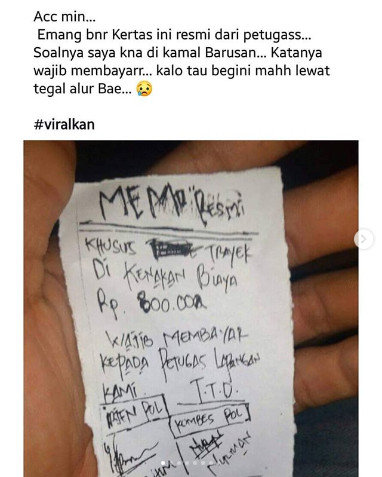 Acc min...
Emang bnr Kertas ini resmi dari petugass...
Soalnya saya kna di kamal Barusan... Katanya
wajib membayarr... kalo tau begini mahh lewat
tegal alur Bae... 😥
#viralkan
MEMO RESMI
KHUSUS TRAYEK
Di KENAKAN BiAyA
Rp. 800.000
WAJIB MEMBAYAR
KEPADA PETUGAS LAPANGAN
KAMI T.T.D
IRJEN POL
KOMBES POL